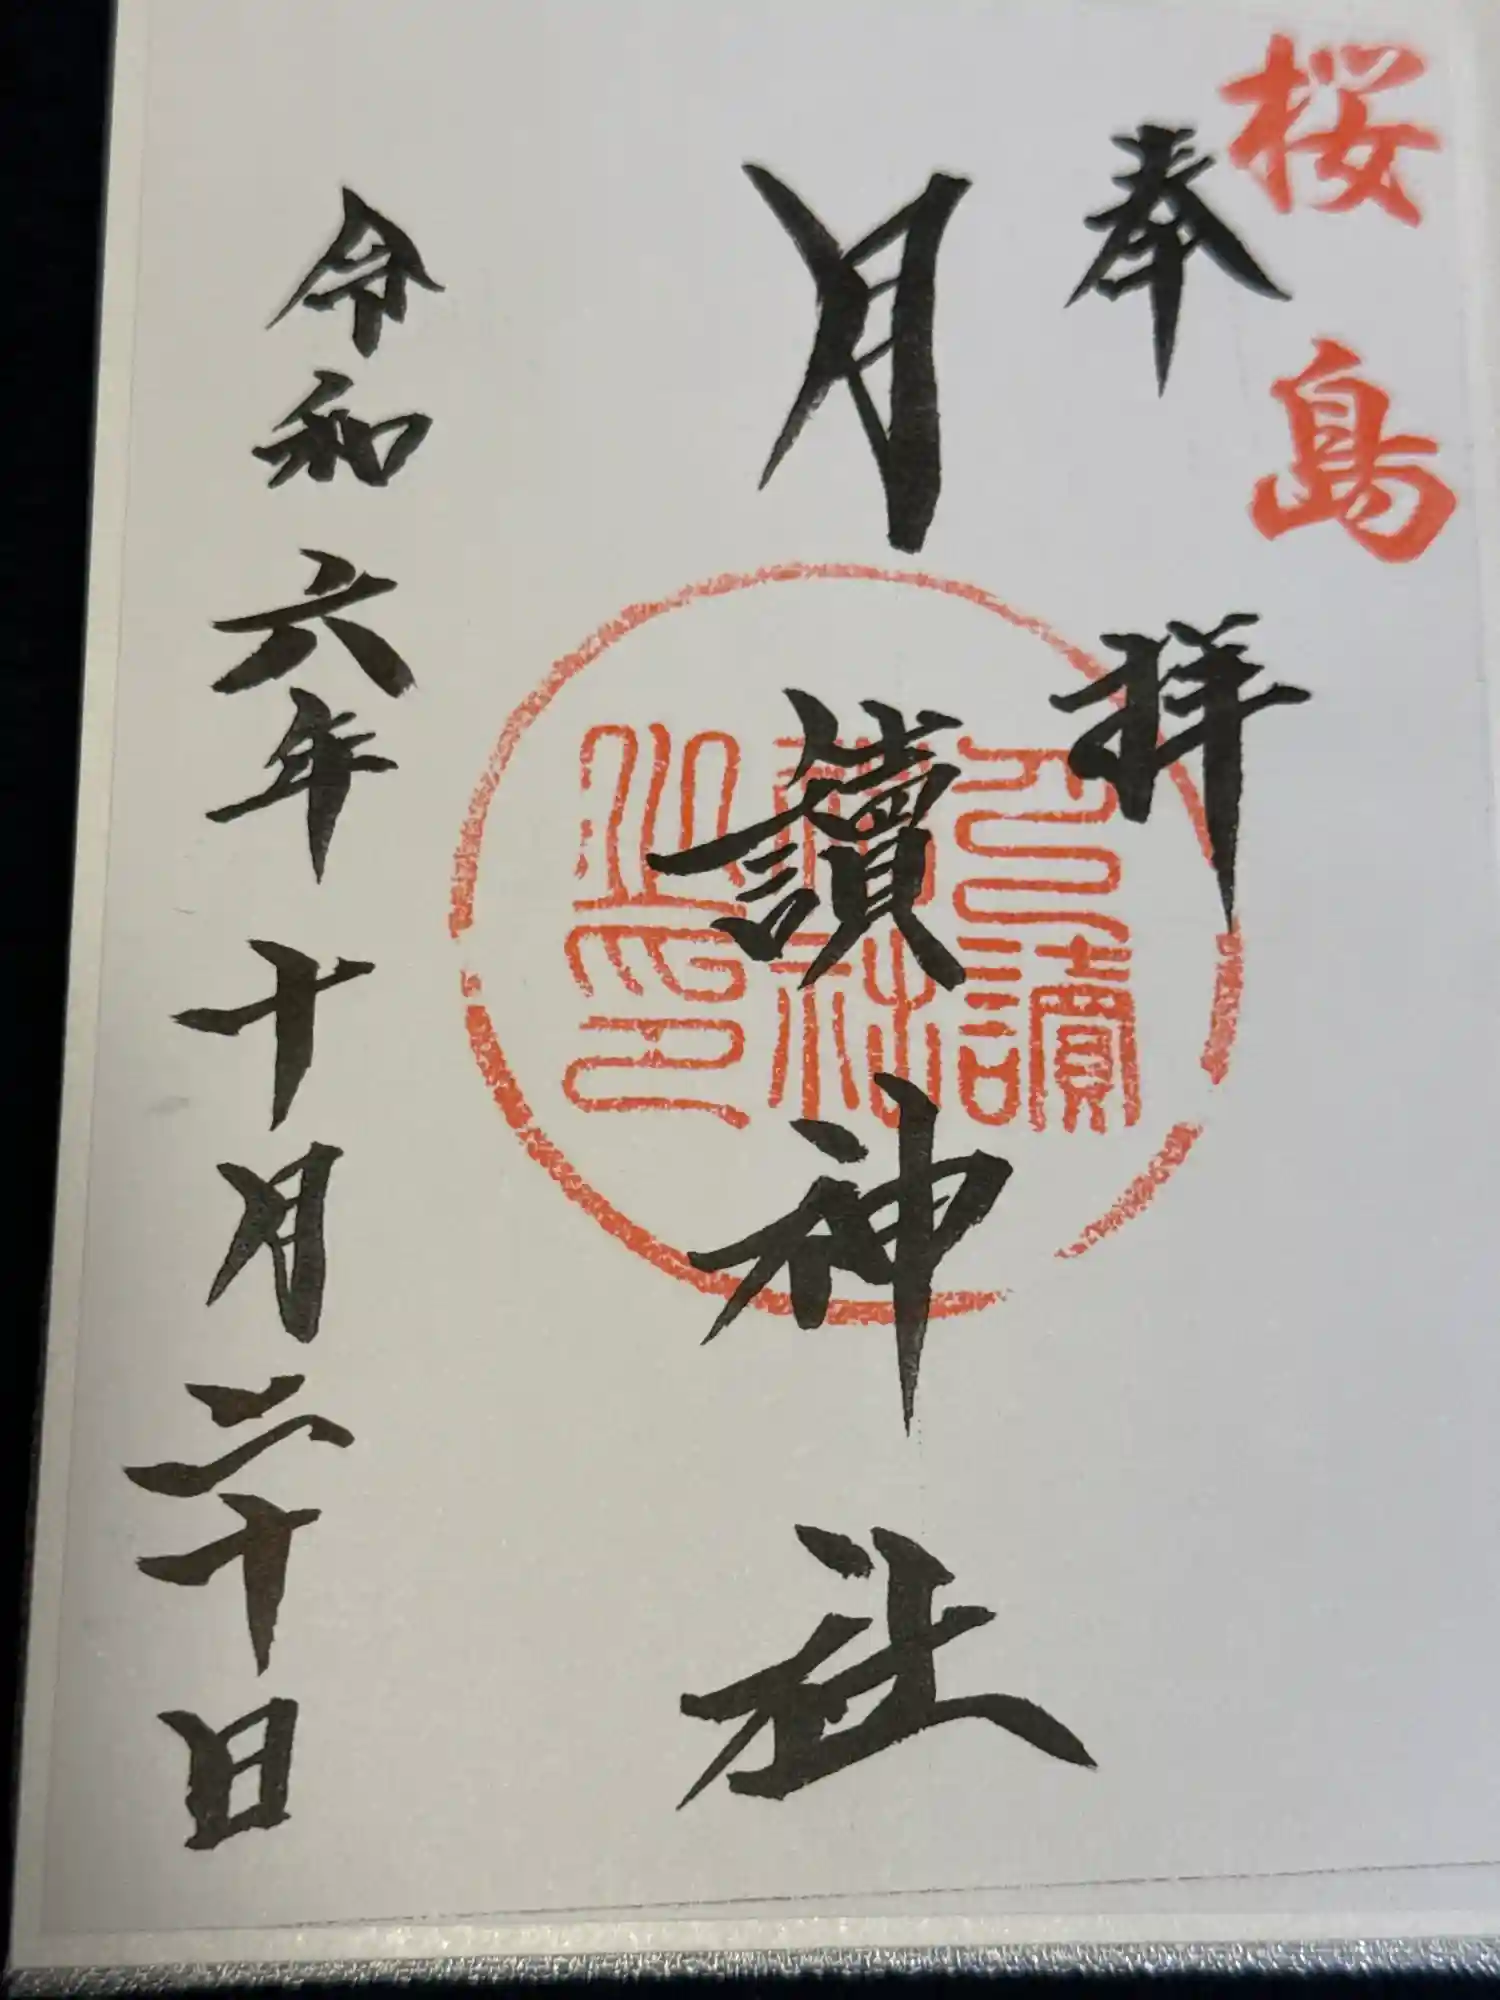 桜島
奉拝
月讀神社
月讀
神社
之印
令和六年十月二十日